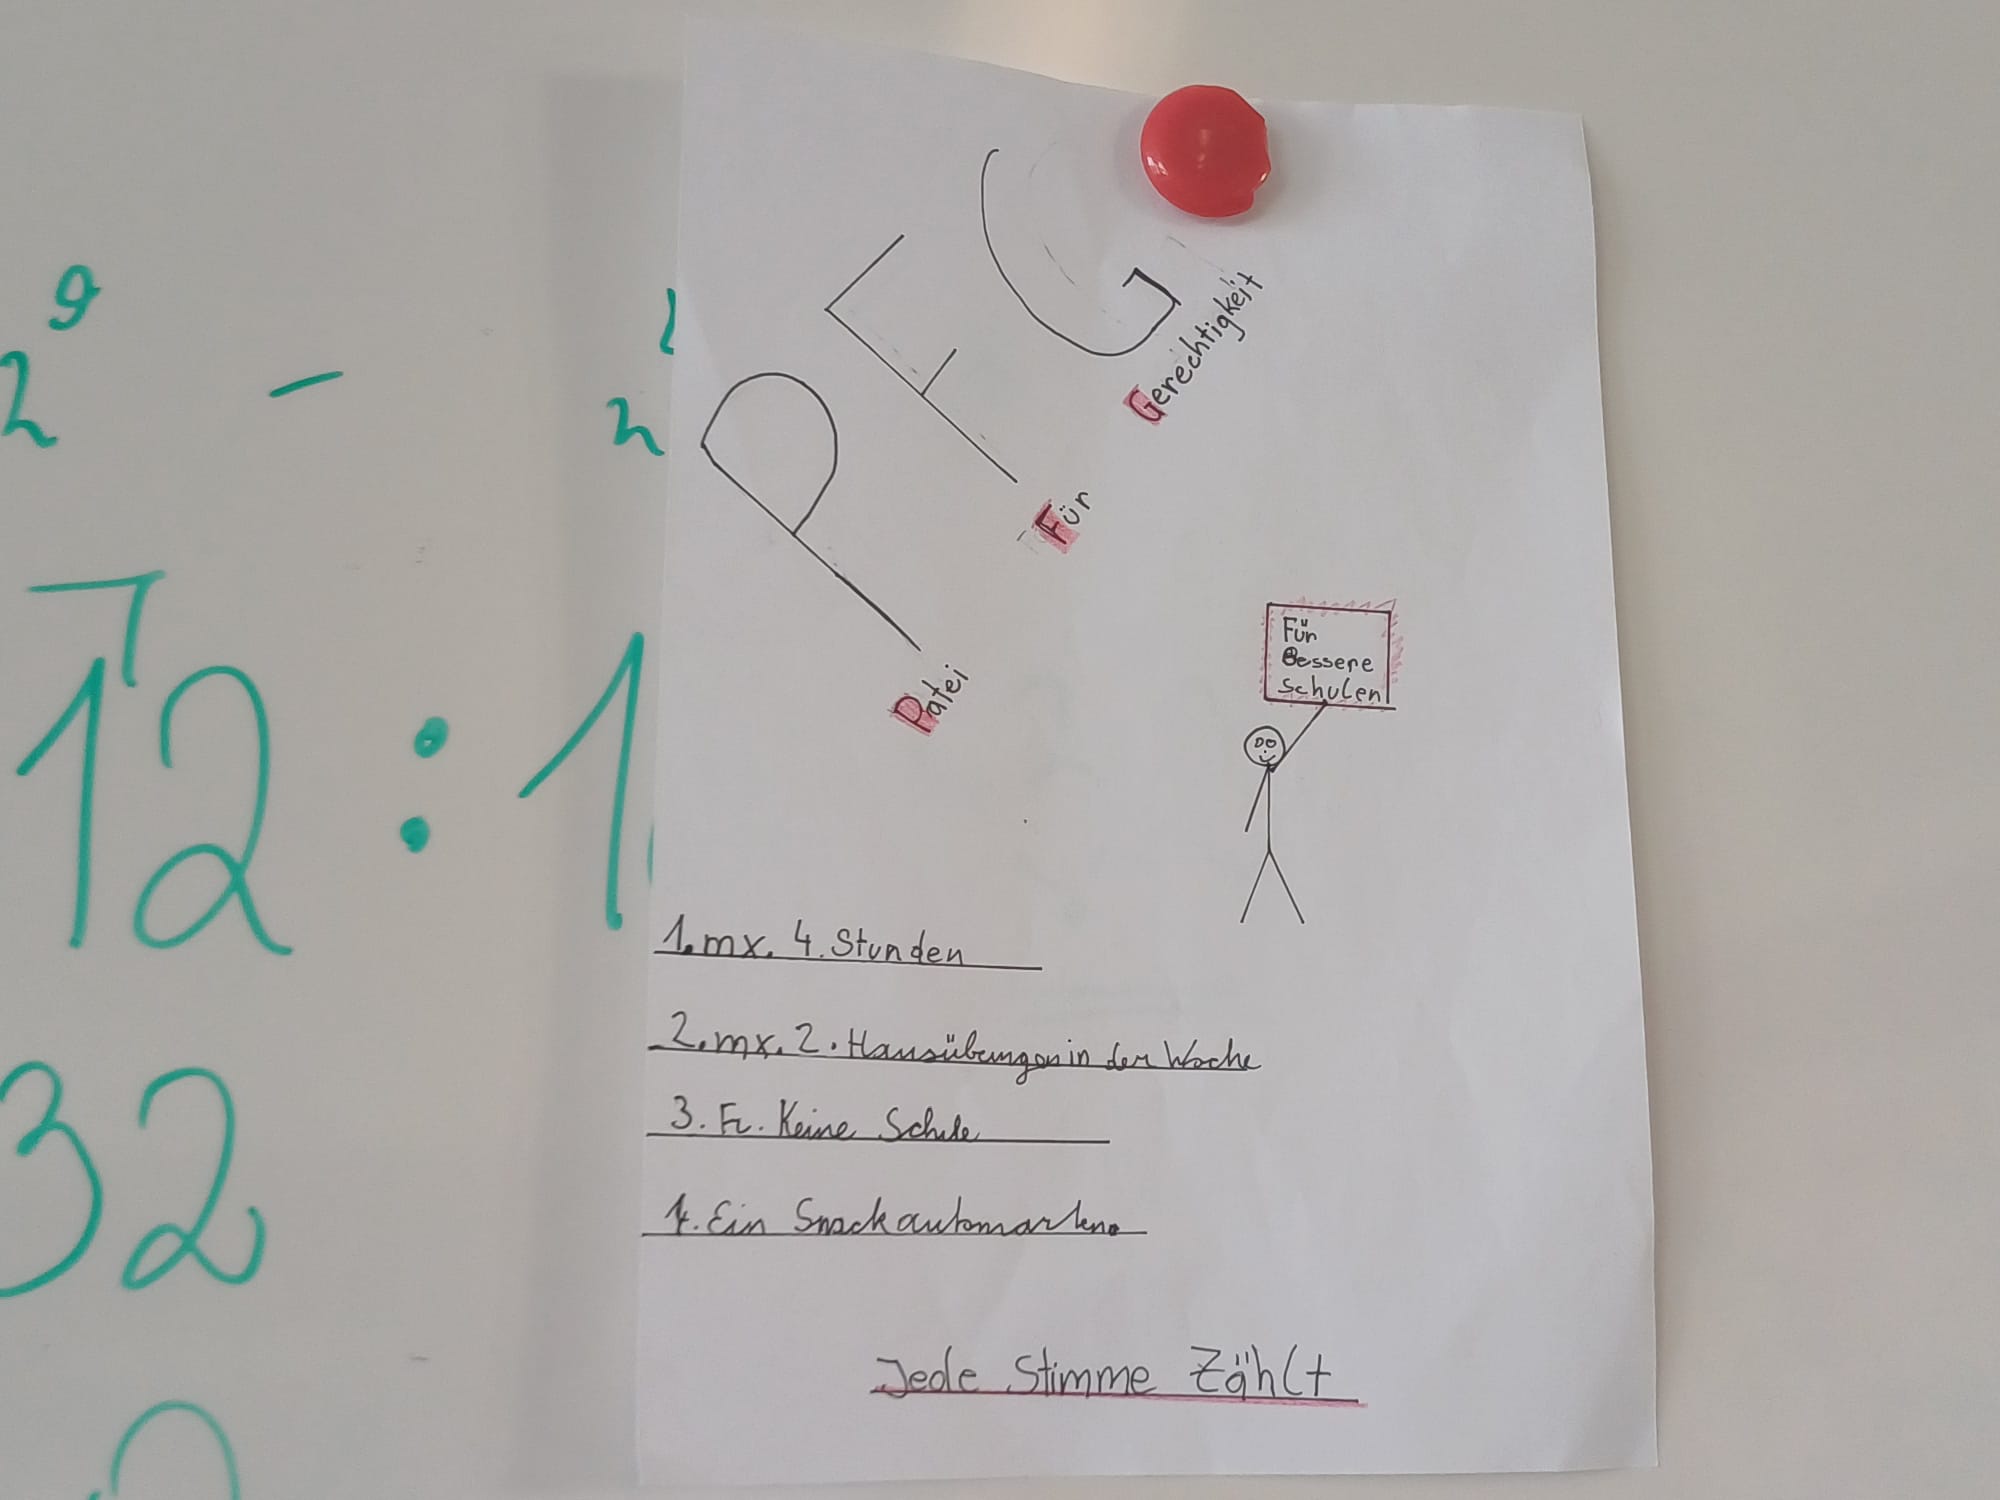 9
2 - 2
12 : 1
32
PFG
Patei
Für
Gerechtigkeit
Für
Bessere
Schulen
1. mx. 4. Stunden
2. mx. 2. Hausübungen in der Woche
3. Fr. Keine Schule
4. Ein Snackautomarten.
Jede Stimme Zählt